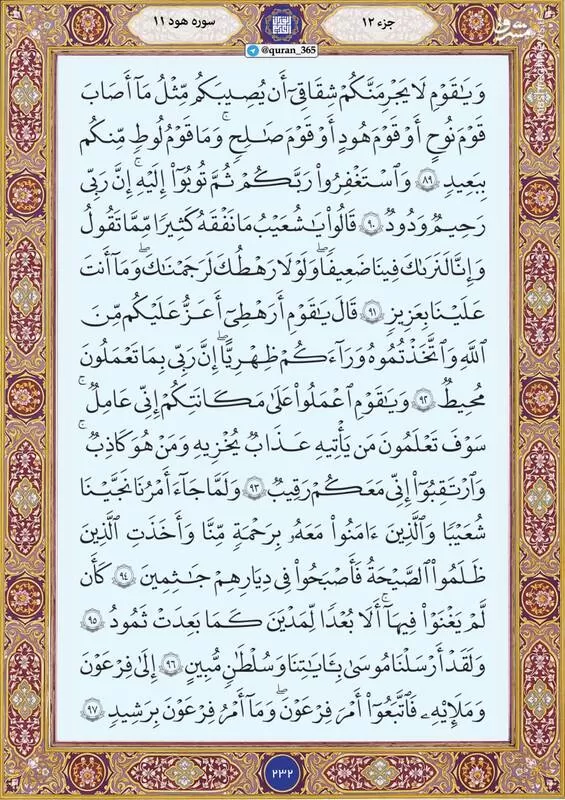 جزء ١٢
سوره هود ١١
@quran_365
وَيَـٰقَوْمِ لَا يَجْرِمَنَّكُمْ شِقَاقِىٓ أَن يُصِيبَكُم مِّثْلُ مَآ أَصَابَ
قَوْمَ نُوحٍ أَوْ قَوْمَ هُودٍ أَوْ قَوْمَ صَـٰلِحٍ ۚ وَمَا قَوْمُ لُوطٍ مِّنكُم
بِبَعِيدٍ ٨٩ وَٱسْتَغْفِرُوا۟ رَبَّكُمْ ثُمَّ تُوبُوٓا۟ إِلَيْهِ ۚ إِنَّ رَبِّى
رَحِيمٌ وَدُودٌ ٩٠ قَالُوا۟ يَـٰشُعَيْبُ مَا نَفْقَهُ كَثِيرًا مِّمَّا تَقُولُ
وَإِنَّا لَنَرَىٰكَ فِينَا ضَعِيفًا ۖ وَلَوْلَا رَهْطُكَ لَرَجَمْنَـٰكَ ۖ وَمَآ أَنتَ
عَلَيْنَا بِعَزِيزٍ ٩١ قَالَ يَـٰقَوْمِ أَرَهْطِىٓ أَعَزُّ عَلَيْكُم مِّنَ
ٱللَّهِ وَٱتَّخَذْتُمُوهُ وَرَآءَكُمْ ظِهْرِيًّا ۖ إِنَّ رَبِّى بِمَا تَعْمَلُونَ
مُحِيطٌ ٩٢ وَيَـٰقَوْمِ ٱعْمَلُوا۟ عَلَىٰ مَكَانَتِكُمْ إِنِّى عَـٰمِلٌ ۖ
سَوْفَ تَعْلَمُونَ مَن يَأْتِيهِ عَذَابٌ يُخْزِيهِ وَمَنْ هُوَ كَـٰذِبٌ ۖ
وَٱرْتَقِبُوٓا۟ إِنِّى مَعَكُمْ رَقِيبٌ ٩٣ وَلَمَّا جَآءَ أَمْرُنَا نَجَّيْنَا
شُعَيْبًا وَٱلَّذِينَ ءَامَنُوا۟ مَعَهُۥ بِرَحْمَةٍ مِّنَّا وَأَخَذَتِ ٱلَّذِينَ
ظَلَمُوا۟ ٱلصَّيْحَةُ فَأَصْبَحُوا۟ فِى دِيَـٰرِهِمْ جَـٰثِمِينَ ٩٤ كَأَن
لَّمْ يَغْنَوْا۟ فِيهَآ ۗ أَلَا بُعْدًا لِّمَدْيَنَ كَمَا بَعِدَتْ ثَمُودُ ٩٥
وَلَقَدْ أَرْسَلْنَا مُوسَىٰ بِـَٔايَـٰتِنَا وَسُلْطَـٰنٍ مُّبِينٍ ٩٦ إِلَىٰ فِرْعَوْنَ
وَمَلَإِي۟هِۦ فَٱتَّبَعُوٓا۟ أَمْرَ فِرْعَوْنَ ۖ وَمَآ أَمْرُ فِرْعَوْنَ بِرَشِيدٍ ٩٧
٢٣٢